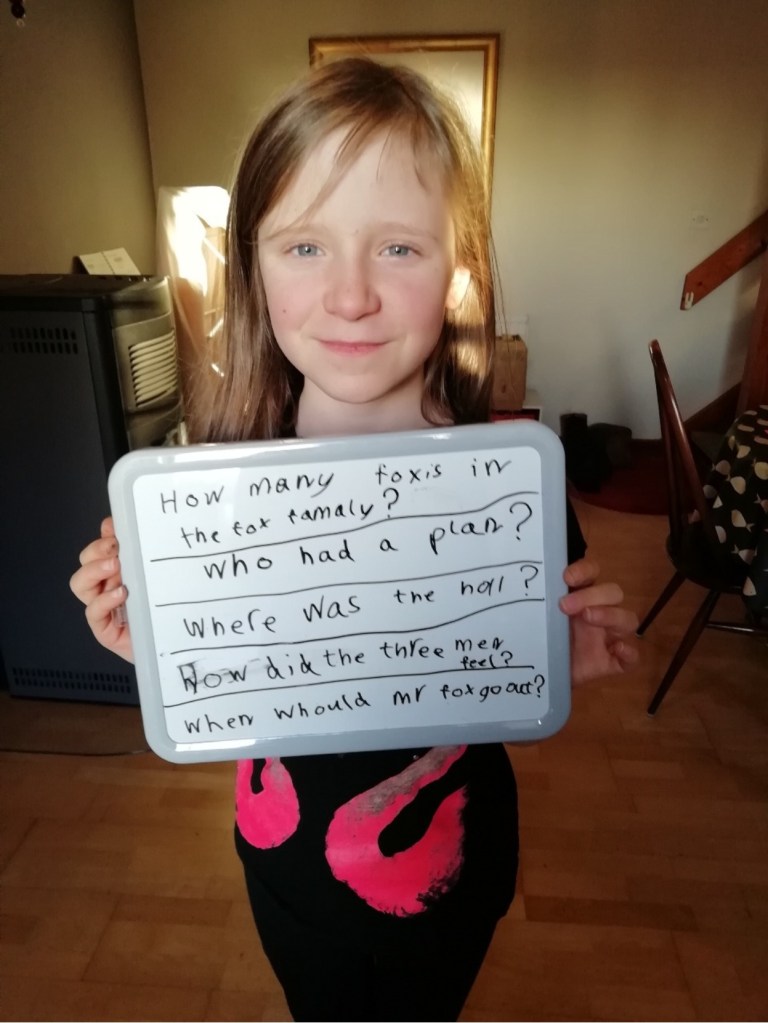 How many foxis in
the fox famaly?
who had a plan?
Where was the hall?
How did the three men
feel?
when whould mr fox go out?